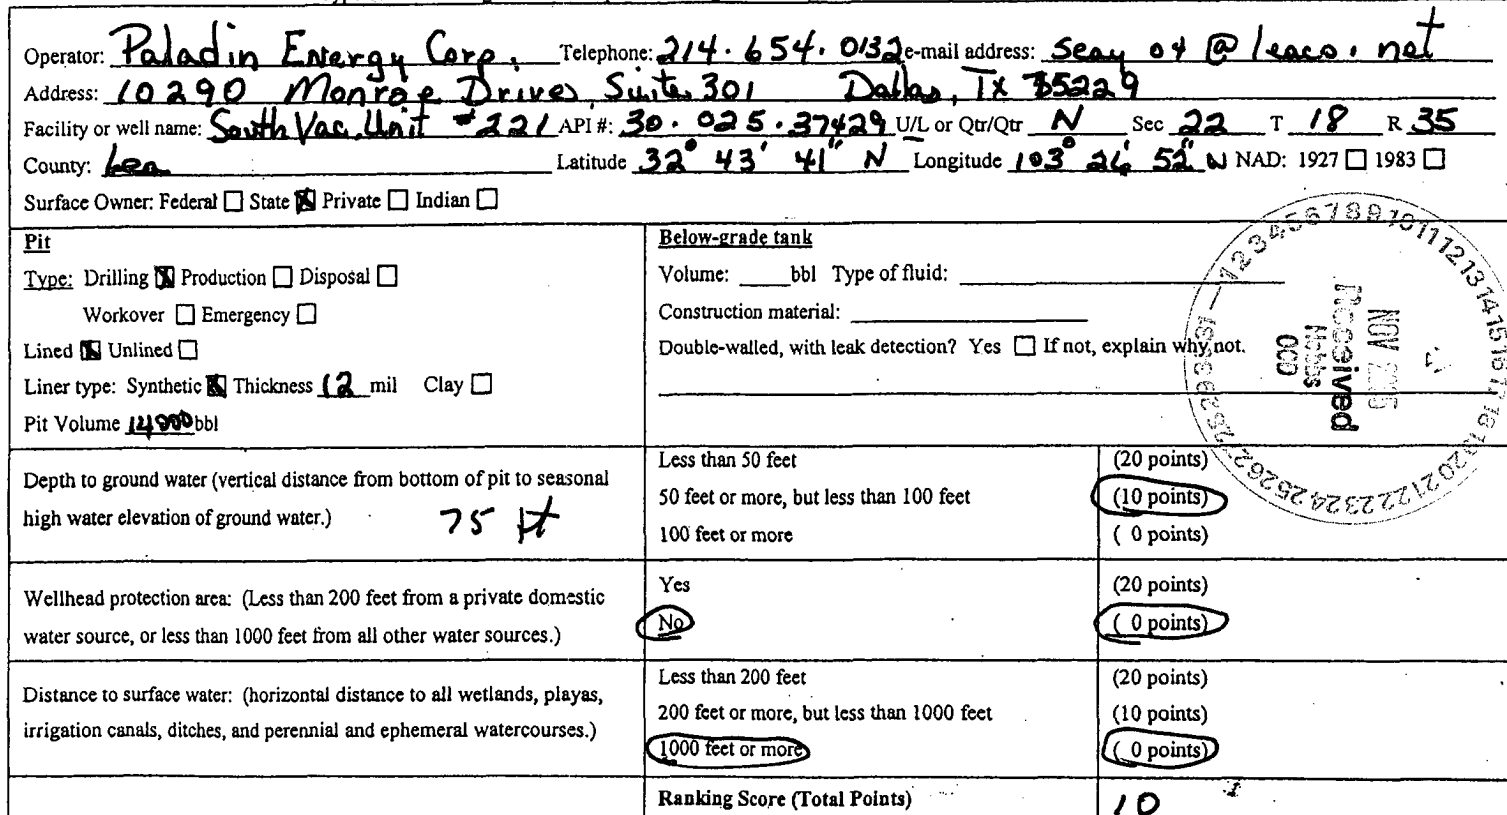 Operator: Paladin Energy Corp. Telephone: 214.654.0132 e-mail address: seay 04 @ leaco.net
Address: 10290 Monroe Drives, Suite 301 Dallas, TX 75229
Facility or well name: South Vac. Unit #221 API #: 30.025.37429 U/L or Qtr/Qtr N Sec 22 T 18 R 35
County: Lea Latitude 32° 43' 41" N Longitude 103° 26' 52" W NAD: 1927 ☐ 1983 ☐
Surface Owner: Federal ☐ State ☒ Private ☐ Indian ☐
Pit
Type: Drilling ☒ Production ☐ Disposal ☐
Workover ☐ Emergency ☐
Lined ☒ Unlined ☐
Liner type: Synthetic ☒ Thickness 12 mil Clay ☐
Pit Volume bbl
Below-grade tank
Volume: ____bbl Type of fluid:
Construction material:
Double-walled, with leak detection? Yes ☐ If not, explain why not.
NOV
Received
Hobbs
OCD
Depth to ground water (vertical distance from bottom of pit to seasonal
high water elevation of ground water.) 75 ft
Less than 50 feet (20 points)
50 feet or more, but less than 100 feet (10 points)
100 feet or more ( 0 points)
Wellhead protection area: (Less than 200 feet from a private domestic
water source, or less than 1000 feet from all other water sources.)
Yes (20 points)
No ( 0 points)
Distance to surface water: (horizontal distance to all wetlands, playas,
irrigation canals, ditches, and perennial and ephemeral watercourses.)
Less than 200 feet (20 points)
200 feet or more, but less than 1000 feet (10 points)
1000 feet or more ( 0 points)
Ranking Score (Total Points) 10